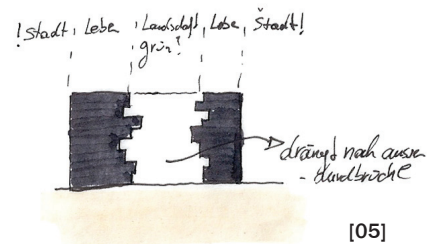 ! Stadt, Leben, Landschaft, Leben, Stadt!
grün!
drängt nach aussen
- durchbrüche
[05]